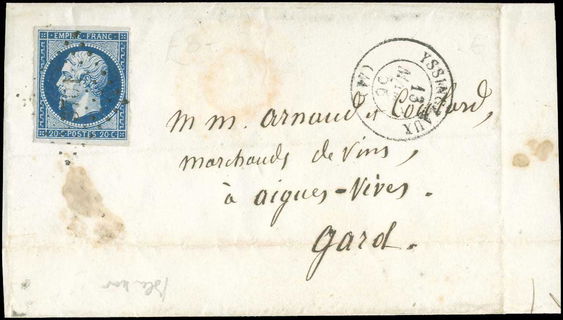 EMPIRE FRANC.
20c POSTES 20c
YSSINGEAUX
13
56
(41)
m m. arnaud et
marchands de vins,
à aigues-Vives.
gard.